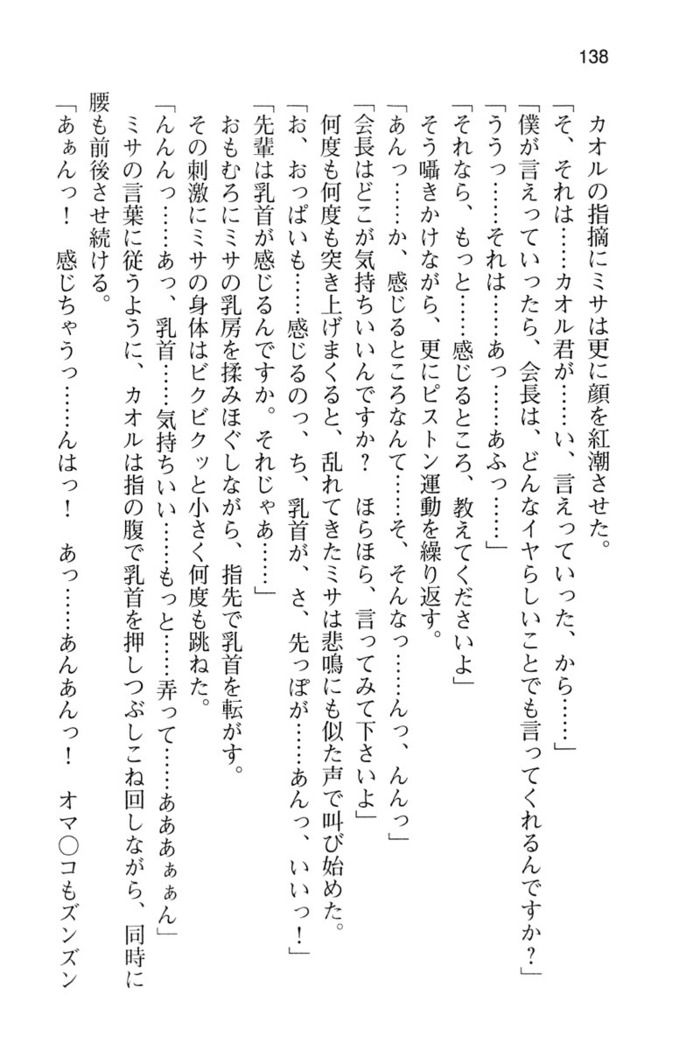 138
カオルの指摘にミサは更に顔を紅潮させた。
「そ、それは……カオル君が……い、言えっていった、から……」
「僕が言えっていったら、会長は、どんなイヤらしいことでも言ってくれるんですか？」
「ううっ……それは……あっ……あふっ……」
「それなら、もっと……感じるところ、教えてくださいよ」
そう囁きかけながら、更にピストン運動を繰り返す。
「あんっ……か、感じるところなんて……そ、そんなっ……んっ、んんっ」
「会長はどこが気持ちいいんですか？　ほらほら、言ってみて下さいよ」
何度も何度も突き上げまくると、乱れてきたミサは悲鳴にも似た声で叫び始めた。
「お、おっぱいも……感じるのっ、ち、乳首が、さ、先っぽが……あんっ、いいっ！」
「先輩は乳首が感じるんですか。それじゃあ……」
おもむろにミサの乳房を揉みほぐしながら、指先で乳首を転がす。
その刺激にミサの身体はビクビクッと小さく何度も跳ねた。
「んんんっ……あっ、乳首……気持ちいい……もっと……弄って……あああぁぁん」
ミサの言葉に従うように、カオルは指の腹で乳首を押しつぶしこね回しながら、同時に
腰も前後させ続ける。
「あぁんっ！　感じちゃうっ……んはっ！　あっ……あんあんっ！　オマ〇コもズンズン